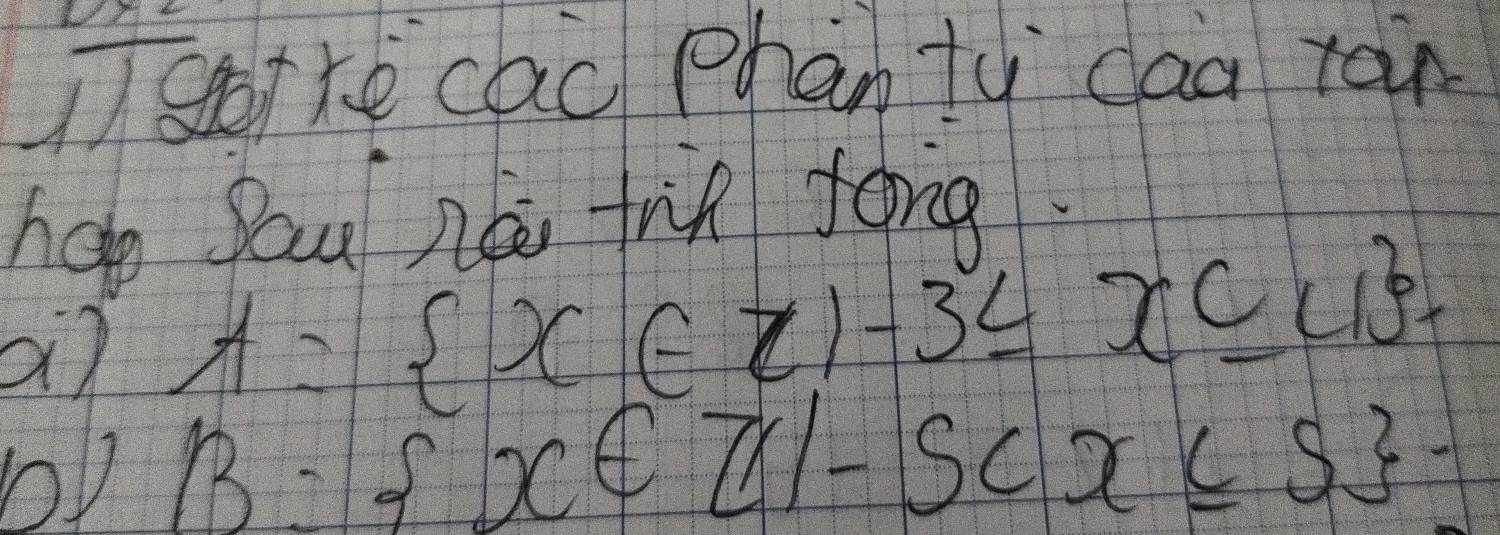 1) liệt kê các phần tử của tập
hợp sau rồi tính tổng.
a) A = { x ∈ Z | -3 ≤ x ≤
b) B = { x ∈ Z | - 5 < x ≤ 5 }.